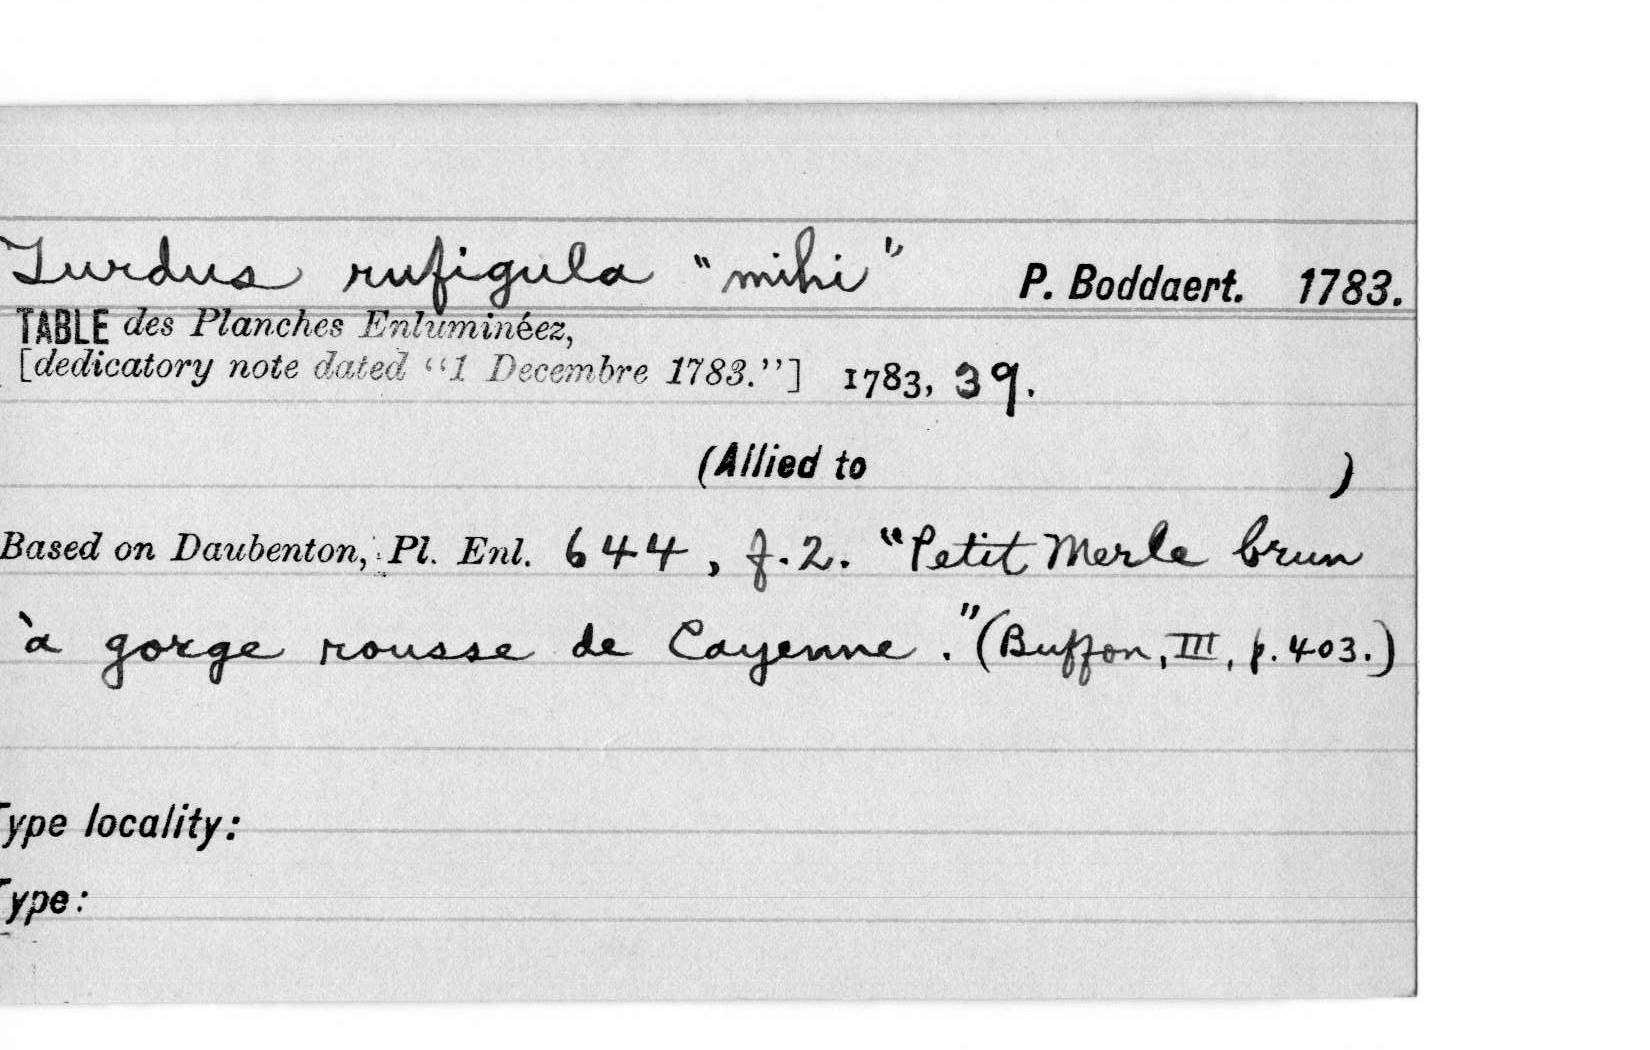 Turdus rufigula "mihi" P. Boddaert. 1783.
TABLE des Planches Enluminéez,
[dedicatory note dated "1 Decembre 1783."] 1783, 39.
(Allied to )
Based on Daubenton, Pl. Enl. 644, f.2. "Petit Merle brun
à gorge rousse de Cayenne." (Buffon, III, p. 403.)
Type locality:
Type: